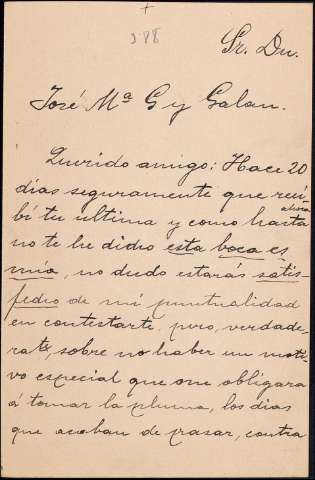 +
388
Sr. Dn.
José Mª G y Galan.
Querido amigo: Hace 20
dias seguramente que reci-
bí tu ultima y como hasta ahora
no te he dicho esta boca es
mía, no dudo estarás satis-
fecho de mi puntualidad
en contestarte. pero, verdade-
rate, sobre no haber un moti-
vo especial que me obligara
á tomar la pluma, los dias
que acaban de pasar, contra